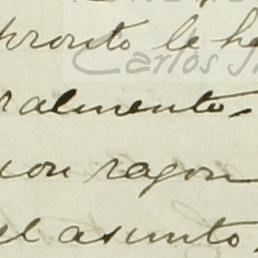 pronto le he
Carlos
ralmente
con razon
el asunto.